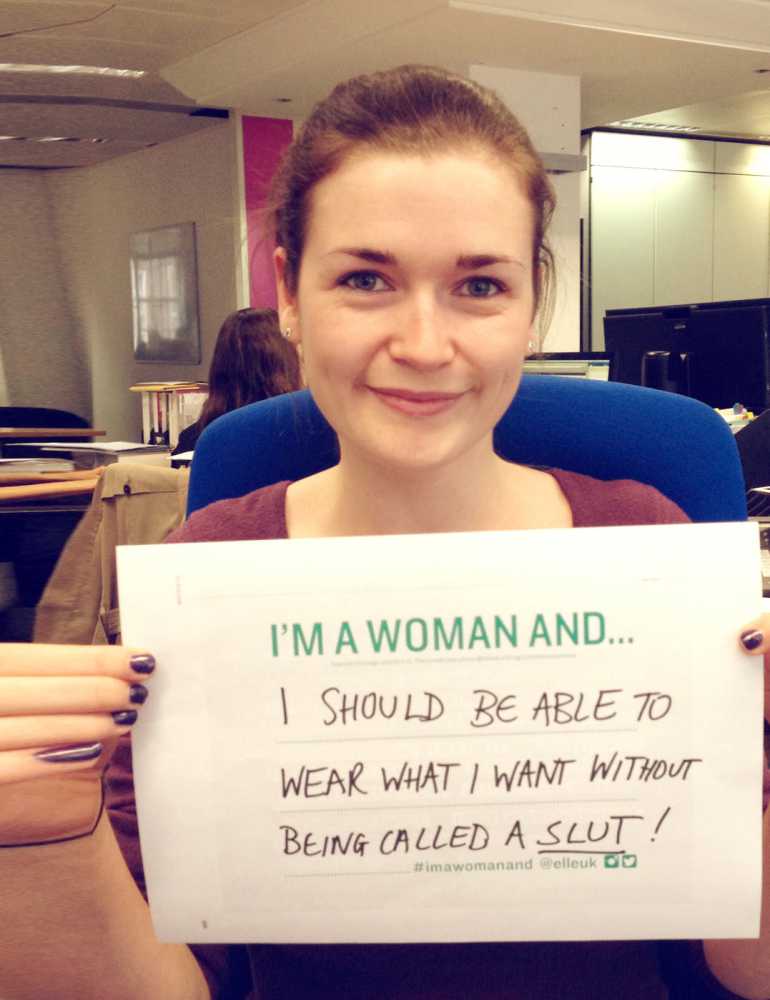 I'M A WOMAN AND...
I SHOULD BE ABLE TO
WEAR WHAT I WANT WITHOUT
BEING CALLED A SLUT!
#imawomanand @elleuk